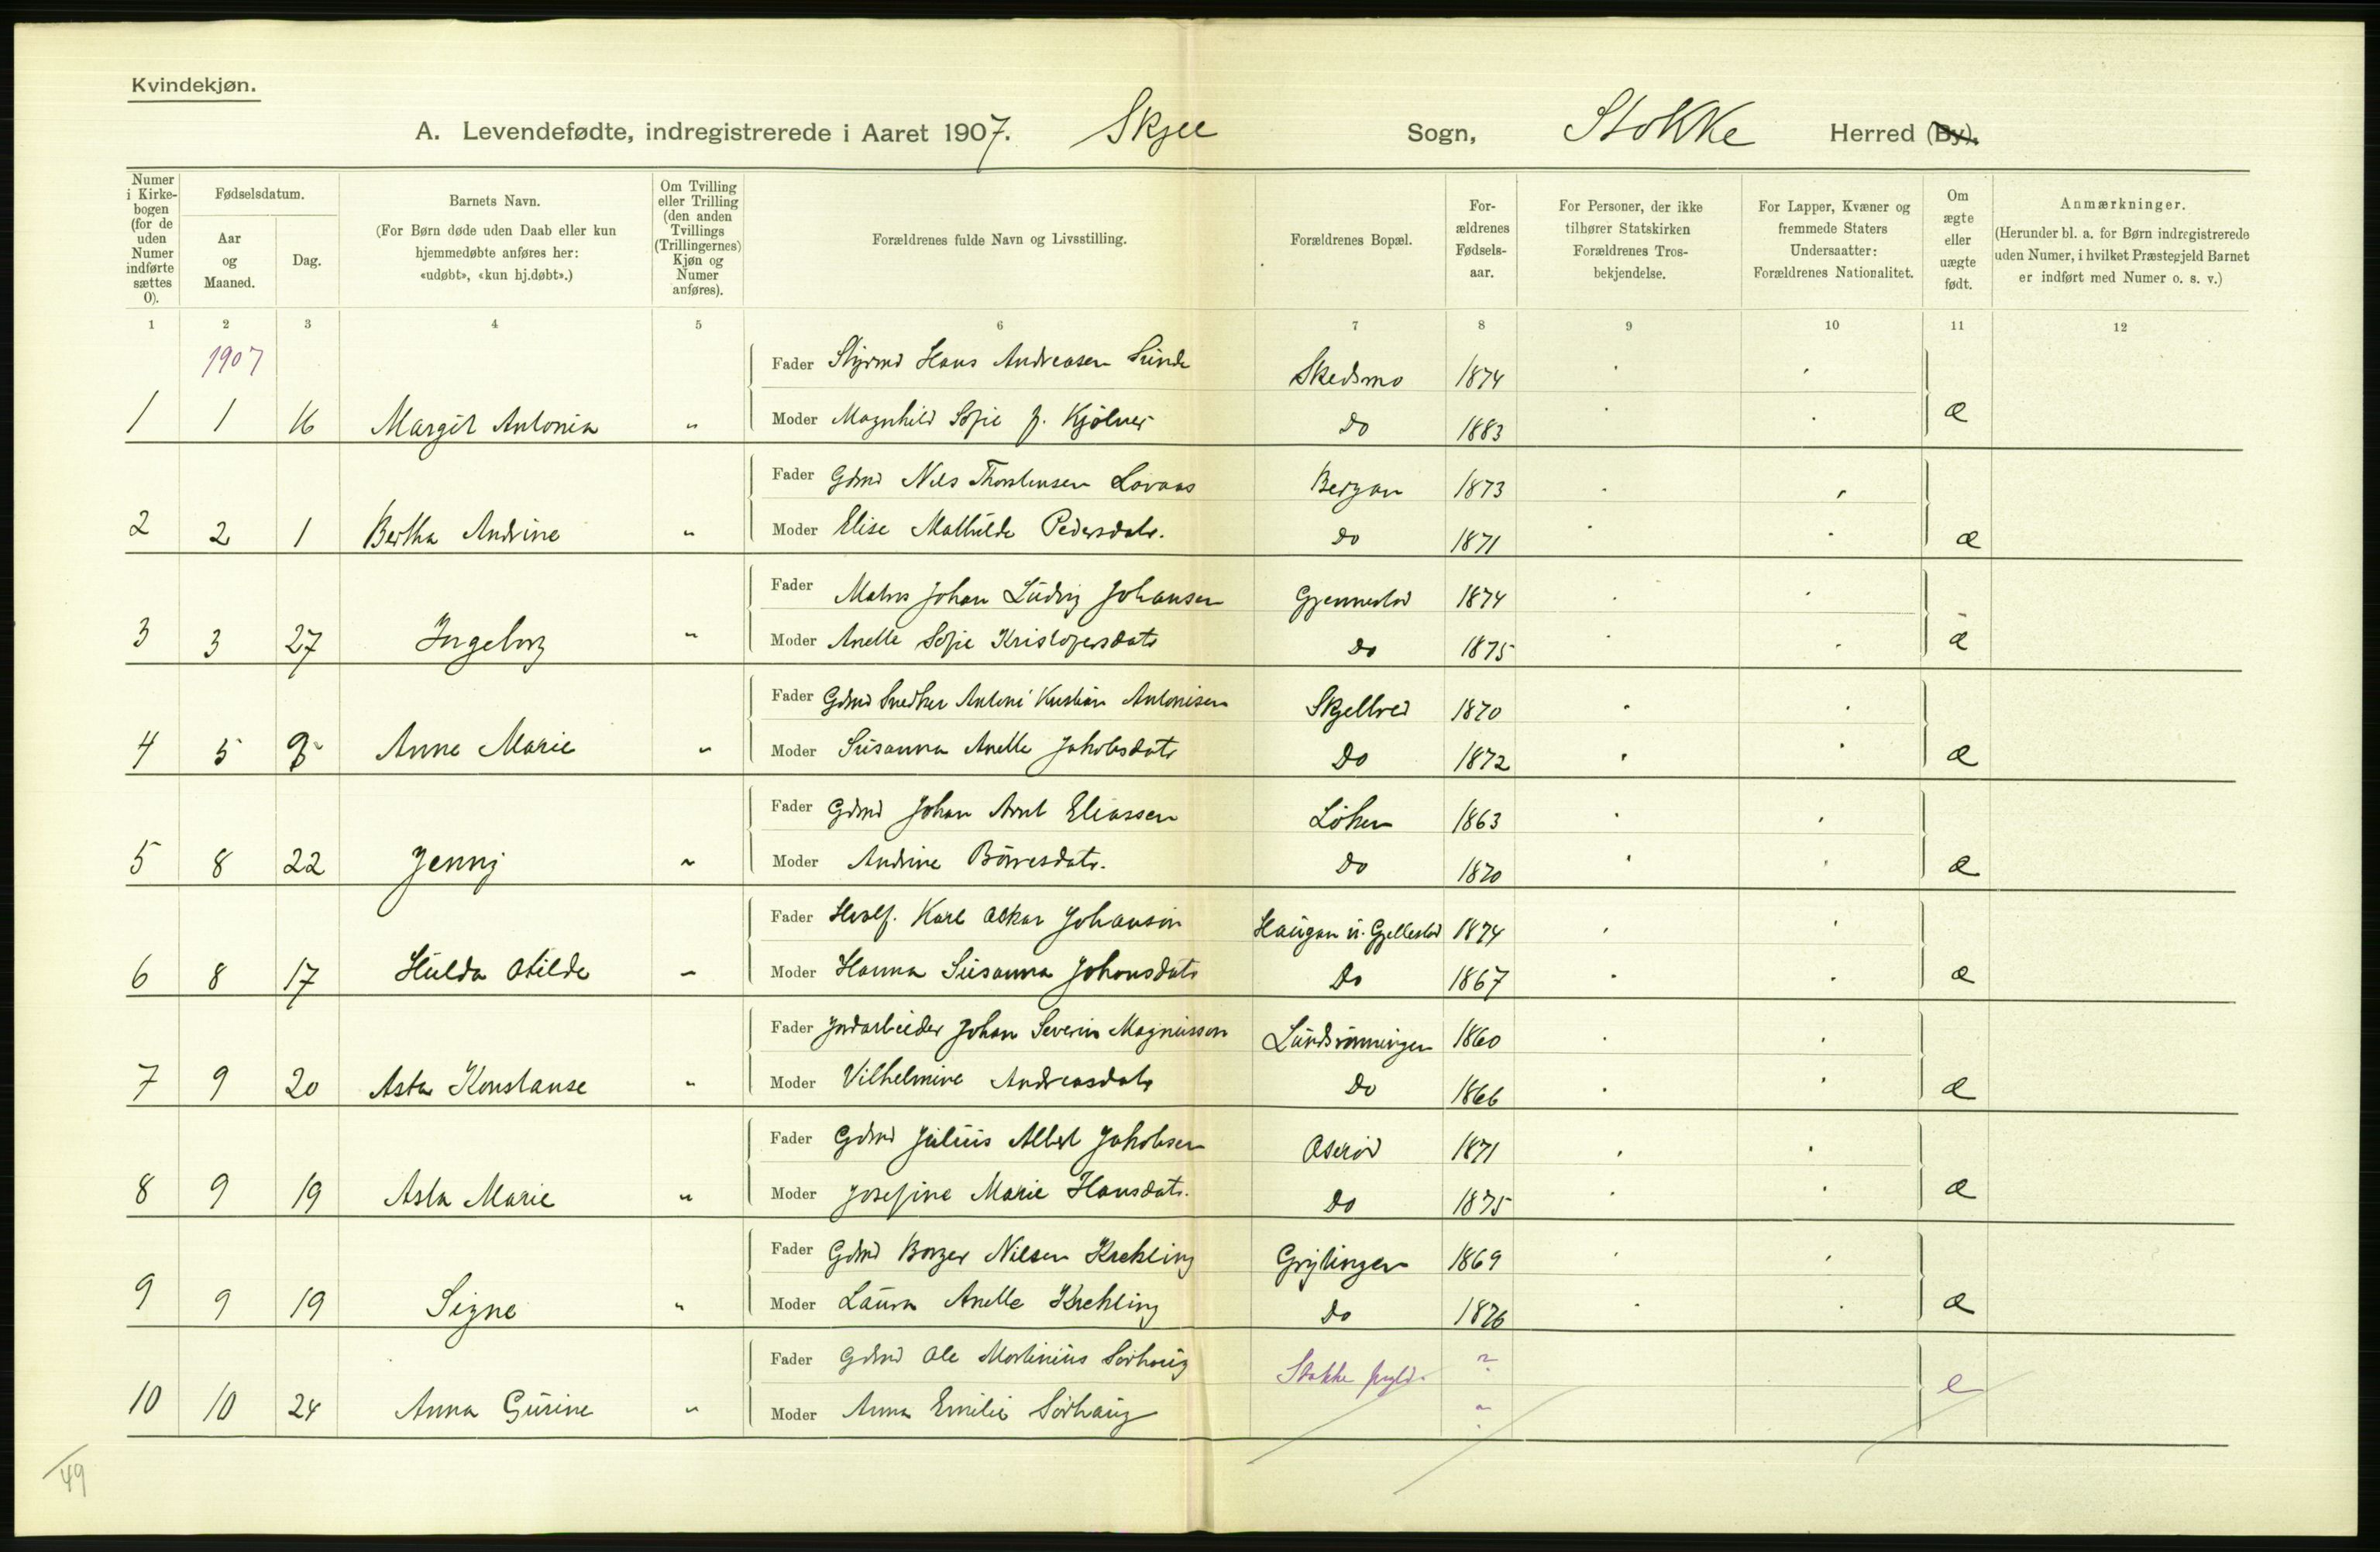 Kvindekjøn.
A. Levendefødte, indregistrerede i Aaret 1907. Skjee Sogn, Stokke Herred (By).
Numer i Kirke-bogen (for de uden Numer indførte sættes 0).
Fødselsdatum.
Aar og Maaned.
Dag.
Barnets Navn.
(For Børn døde uden Daab eller kun hjemmedøbte anføres her: «udøbt», «kun hj.døbt».)
Om Tvilling eller Trilling (den anden Tvillings (Trillingernes) Kjøn og Numer anføres).
Forældrenes fulde Navn og Livsstilling.
Forældrenes Bopæl.
For-ældrenes Fødsels-aar.
For Personer, der ikke tilhører Statskirken Forældrenes Tros-bekjendelse.
For Lapper, Kvæner og fremmede Staters Undersaatter: Forældrenes Nationalitet.
Om ægte eller uægte født.
Anmærkninger.
(Herunder bl. a. for Børn indregistrerede uden Numer, i hvilket Præstegjeld Barnet er indført med Numer o. s. v.)
1 2 3 4 5 6 7 8 9 10 11 12
1907
Fader Styrmd Hans Andreasen Sunde Skedsmo 1874
1 1 16 Margit Antonia " Moder Magnhild Sofie f. Kjölner do 1883 æ
Fader Gdmd Nils Thorstensen Lovaas Bergan 1873
2 2 1 Bertha Andrine " Moder Elise Mathilde Pedersdatr. do 1871 æ
Fader Matros Johan Ludvig Johansen Gjennestad 1874
3 3 27 Ingeborg " Moder Anette Sofie Kristofersdatr do 1875 æ
Fader Gdmd Snedker Antoni Kristian Antonisen Skjellved 1870
4 5 Anne Marie " Moder Susanna Anette Jakobsdatr Do 1872 æ
Fader Gdmd Johan Arnt Eliassen Löken 1863
5 8 22 Jenny " Moder Andrine Börresdatr. do 1870 æ
Fader Karl Oskar Johansen Haugan u. Gjellestad 1874
6 8 17 Hulda Otilde " Moder Hanna Susanna Johansdatr Do 1867 æ
Fader Jordarbeider Johan Severin Magnussen Lundsrönningen 1860
7 9 20 Asta Konstanse " Moder Vilhelmine Andreasdatr Do 1866 æ
Fader Gdmd Julius Albert Jakobsen Oseröd 1871
8 9 19 Asta Marie " Moder Josefine Marie Hansdatr. do 1875 æ
Fader Gdmd Borger Nilsen Krekling Grytingen 1869
9 9 19 Signe " Moder Laura Anette Krekling do 1876 æ
Fader Gdmd Ole Martinius Sörhaug Stokke ?
10 10 24 Anna Gurine " Moder Anna Emilie Sörhaug e
49